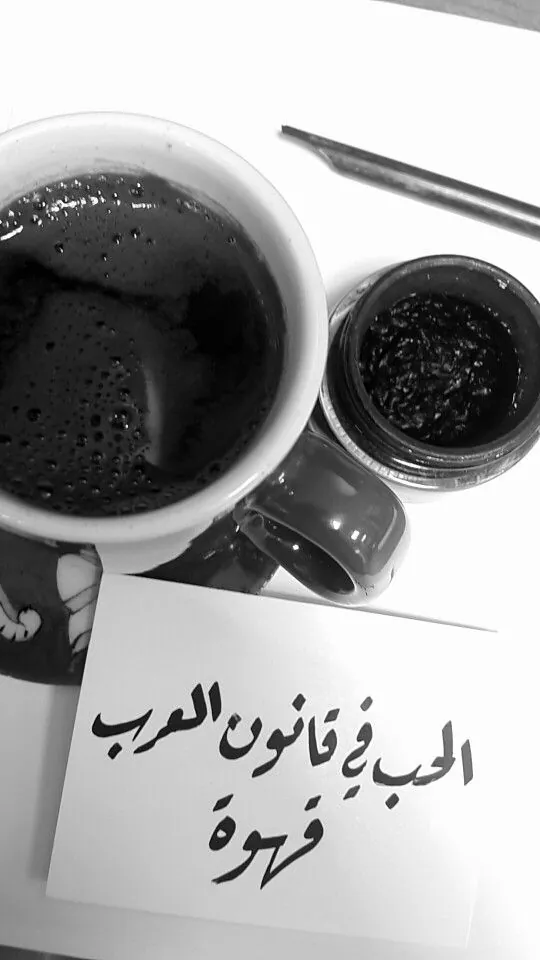 الحب في قانون العرب
قهوة